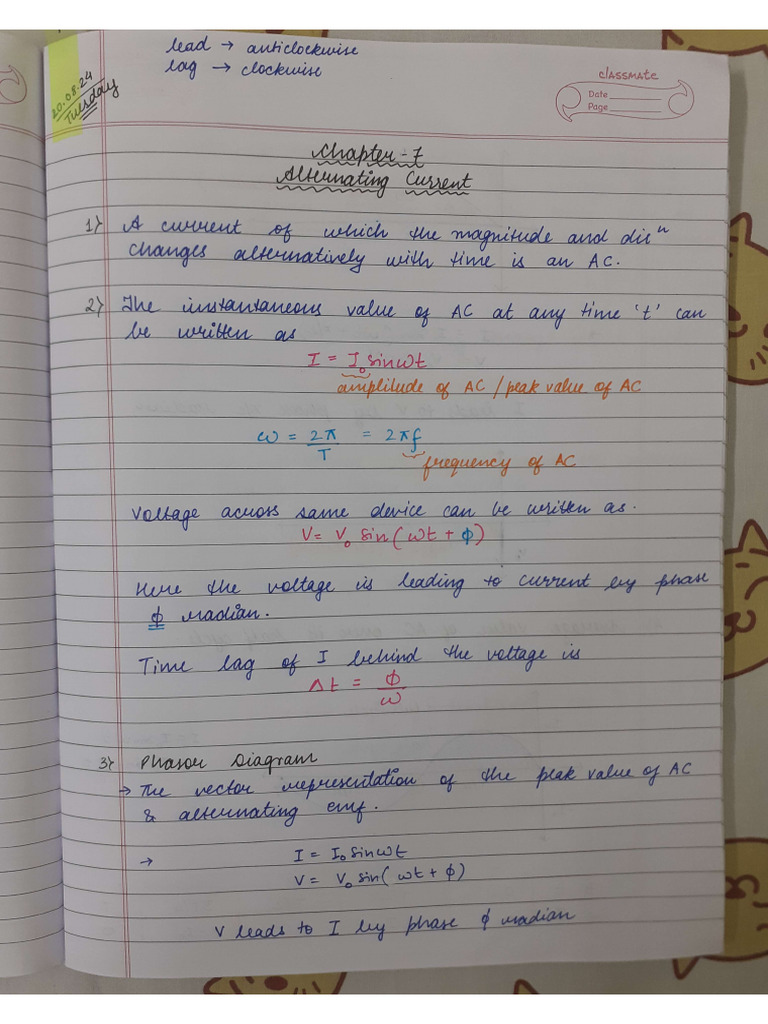 lead → anticlockwise
lag → clockwise
20.08.24
Tuesday
classmate
Date
Page
Chapter-7
Alternating Current
1) A current of which the magnitude and dirⁿ
changes alternatively with time is an AC.
2) The instantaneous value of AC at any time 't' can
be written as
I = I₀ sinωt
amplitude of AC / peak value of AC
ω = 2π/T = 2πf
frequency of AC
Voltage across same device can be written as.
V = V₀ sin(ωt + ϕ)
Here the voltage is leading to current by phase
ϕ radian.
Time lag of I behind the voltage is
Δt = ϕ/ω
3) Phasor Diagram
→ The vector representation of the peak value of AC
& alternating emf.
→ I = I₀ sinωt
V = V₀ sin(ωt + ϕ)
V leads to I by phase ϕ radian